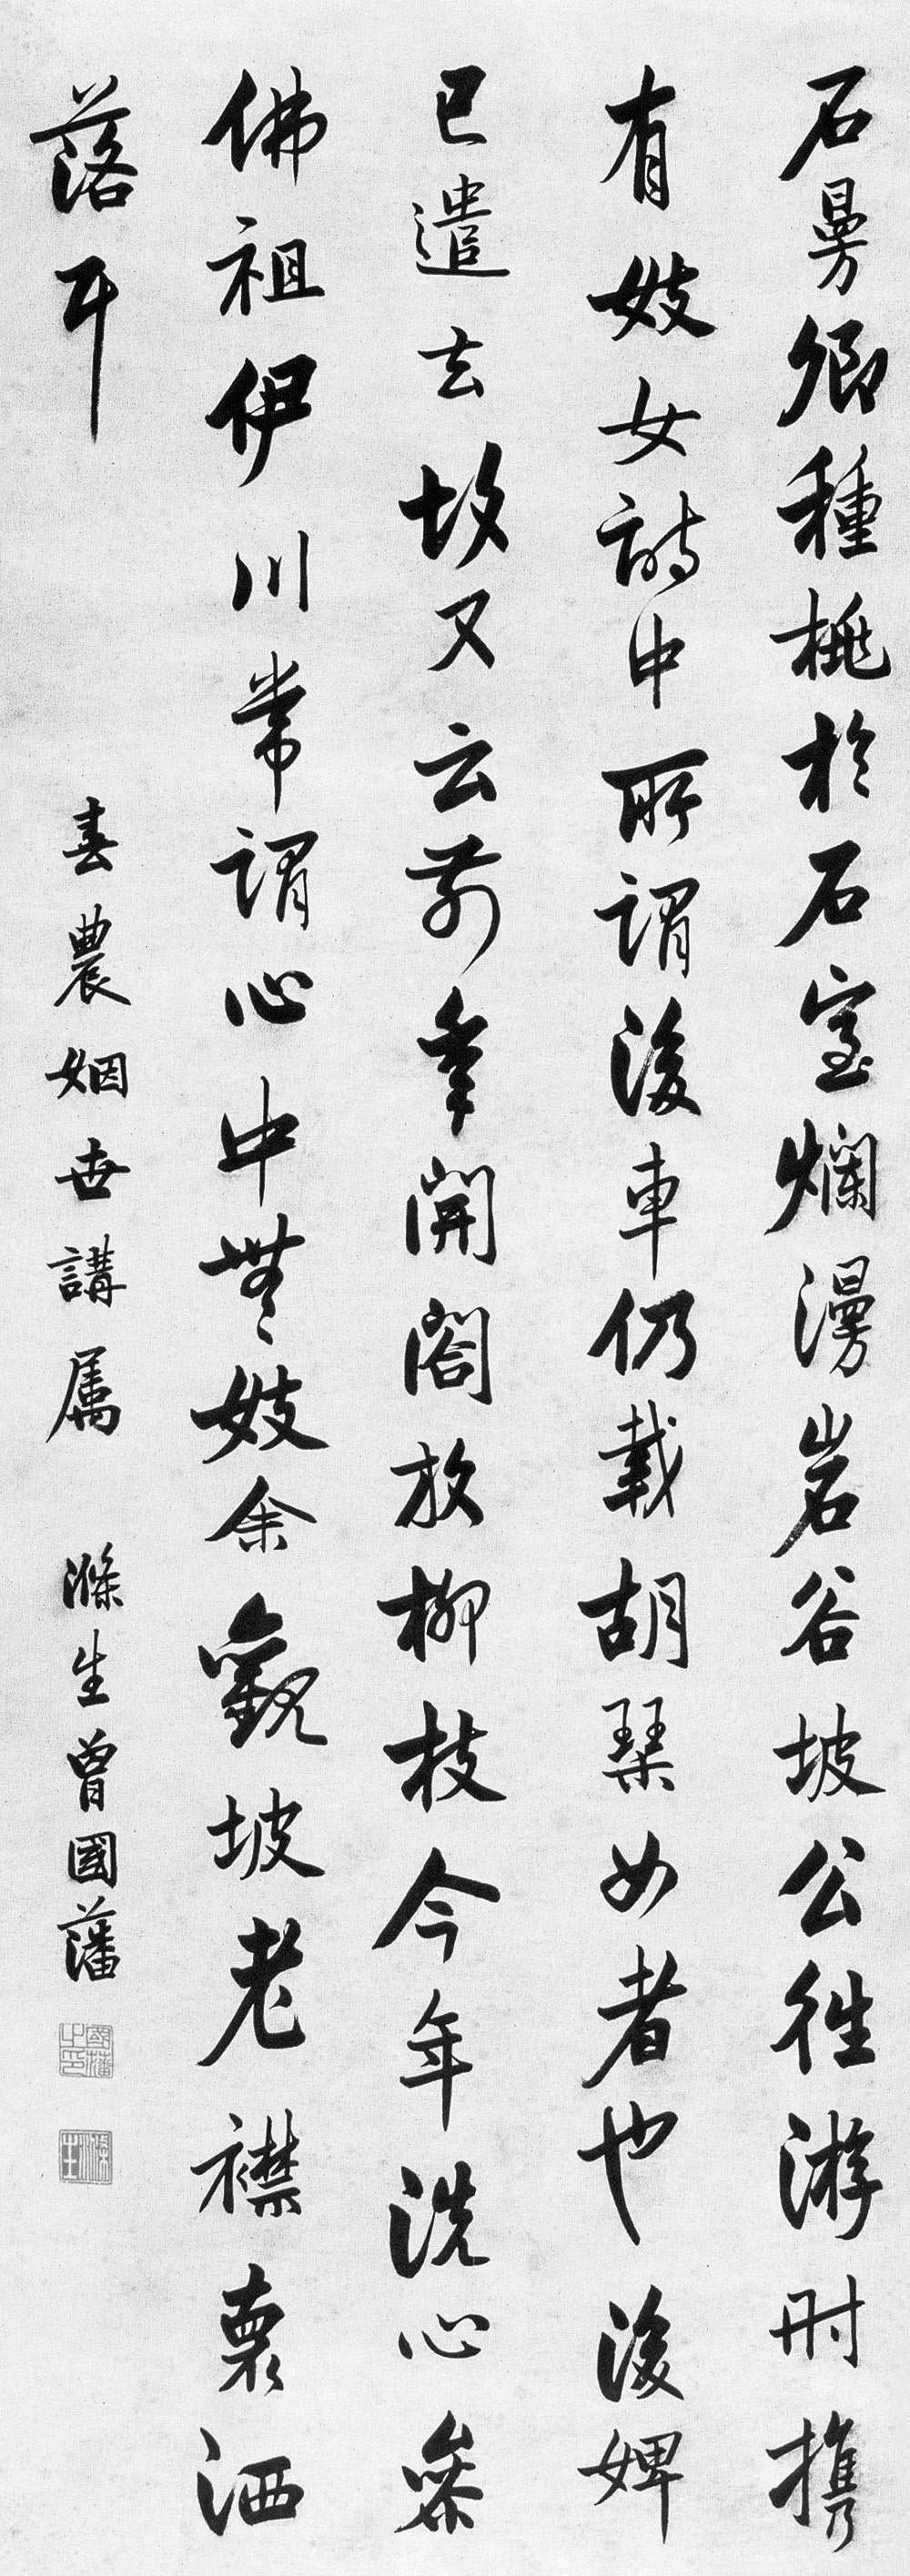 石曼卿種桃於石室爛漫岩谷坡公往游时攜
有妓女詩中所謂後車仍載胡琴女者也後婢
已遣去故又云前年開閤放柳枝今年洗心參
佛祖伊川常謂心中無妓余觀坡老襟裏洒
落耳
春農姻世講屬
滌生曾國藩
國藩之印
滌生